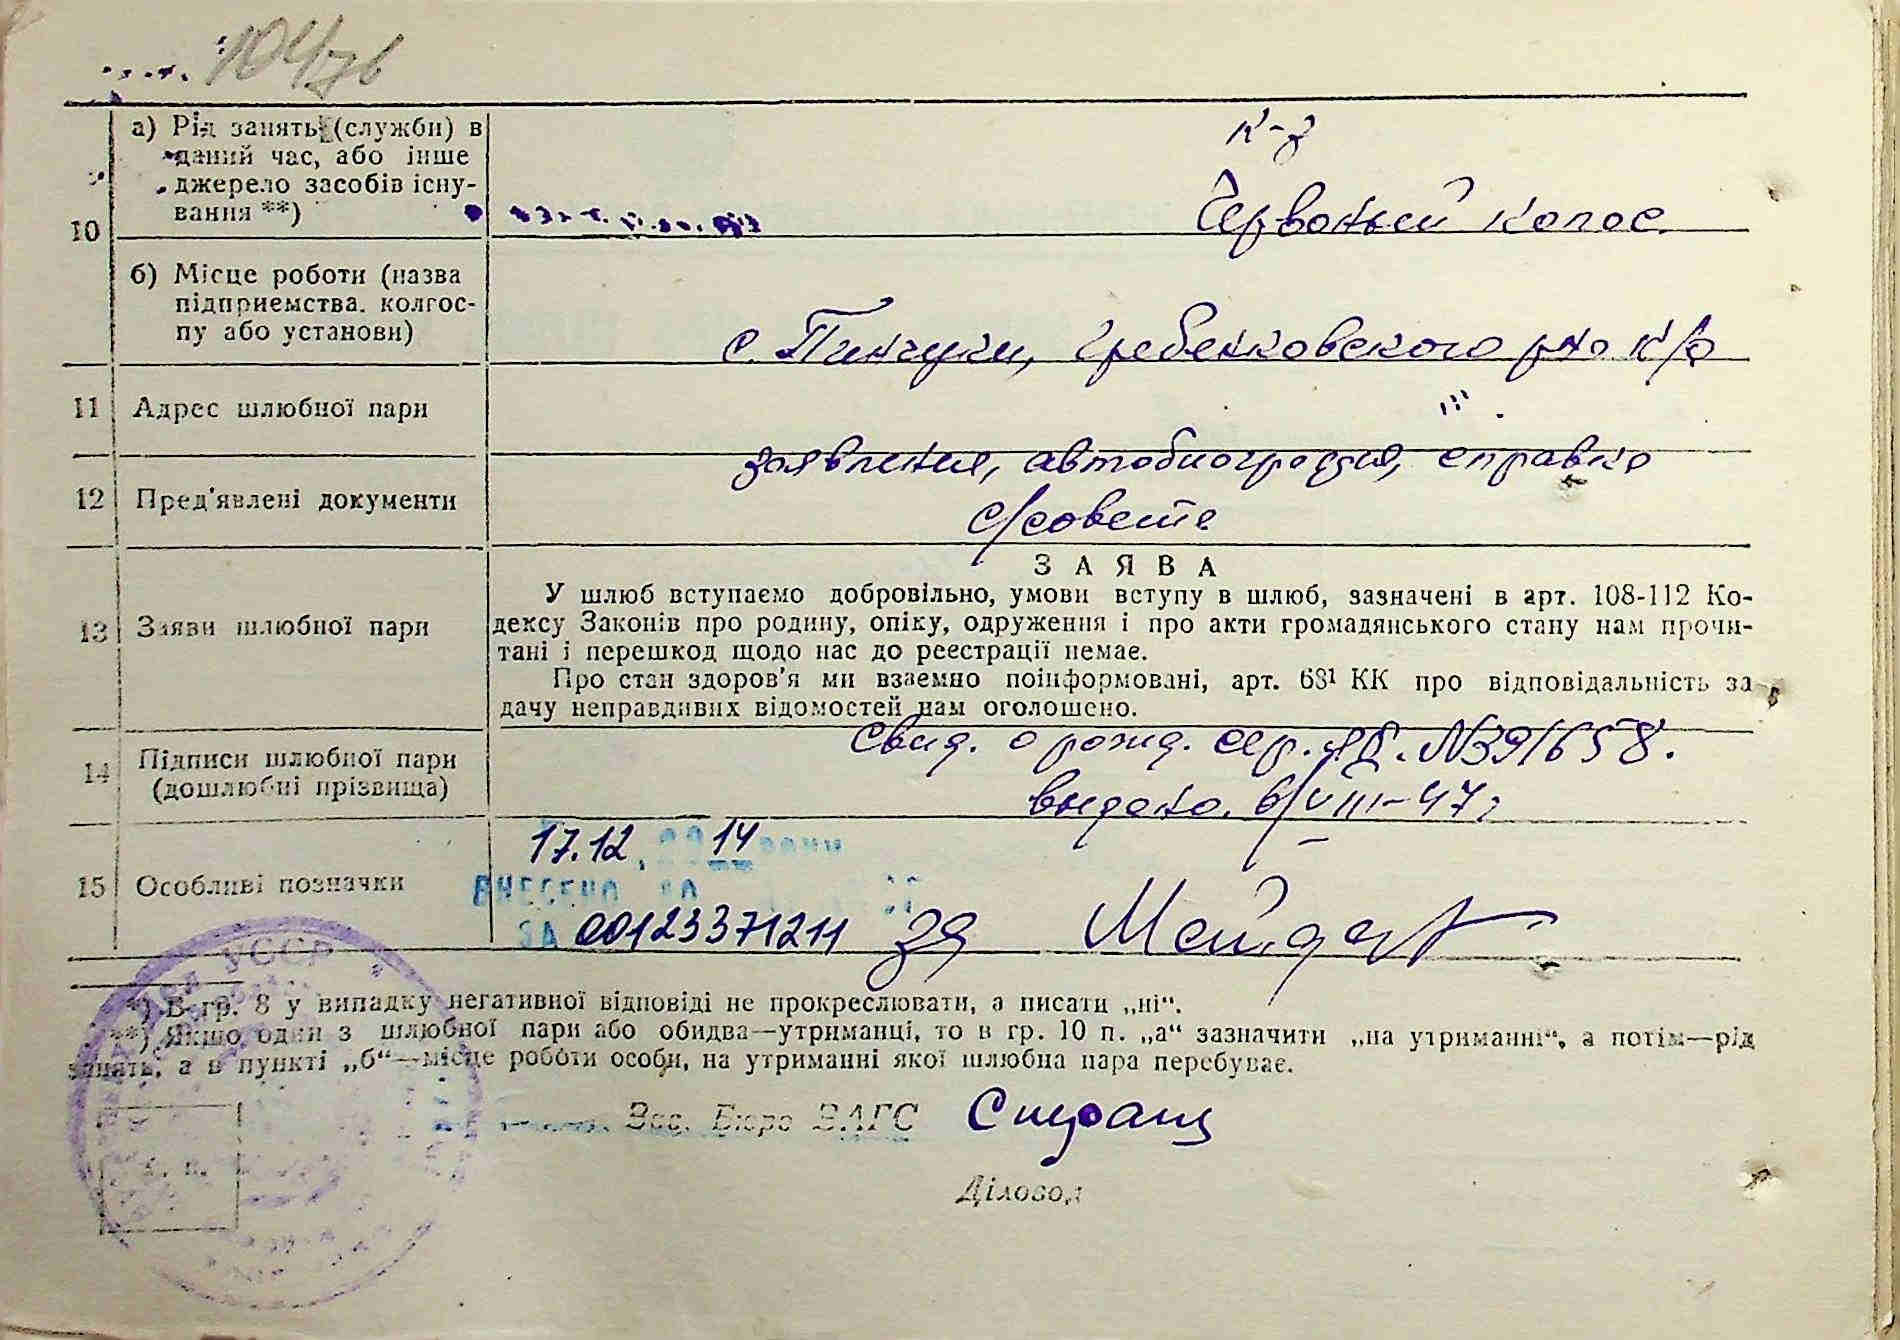 104зв
10
а) Рід занять (служби) в
даний час, або інше
джерело засобів існу-
вання **)
к-з
Червоный колос.
б) Місце роботи (назва
підприемства. колгос-
пу або установи)
с. Пинчуки, Гребенковского р-на К/о
11 Адрес шлюбної пари
"'
12 Пред'явлені документи
заявления, автобиография, справка
с/совета
13 Заяви шлюбної пари
ЗАЯВА
У шлюб вступаємо добровільно, умови вступу в шлюб, зазначені в арт. 108-112 Ко-
дексу Законів про родину, опіку, одруження і про акти громадянського стану нам прочи-
тані і перешкод щодо нас до реестрації немає.
Про стан здоров'я ми взаемно поінформовані, арт. 68¹ КК про відповідальність за
дачу неправдивих відомостей нам оголошено.
14 Підписи шлюбної пари
(дошлюбні прізвища)
Свид. о рожд. сер. № 391658.
выдано. 6/VIII-47г
15 Особливі позначки
17.12. 14
ВНЕСЕНО
ЗА 00123371211 за
*) В гр. 8 у випадку негативної відповіді не прокреслювати, а писати „ні“.
**) Якщо один з шлюбної пари або обидва—утриманці, то в гр. 10 п. „а“ зазначити „на утриманні“, а потім—рід
занять, а в пункті „б“—місце роботи особи, на утриманні якої шлюбна пара перебуває.
Зав. Бюро ЗАГС
Діловод
УССР